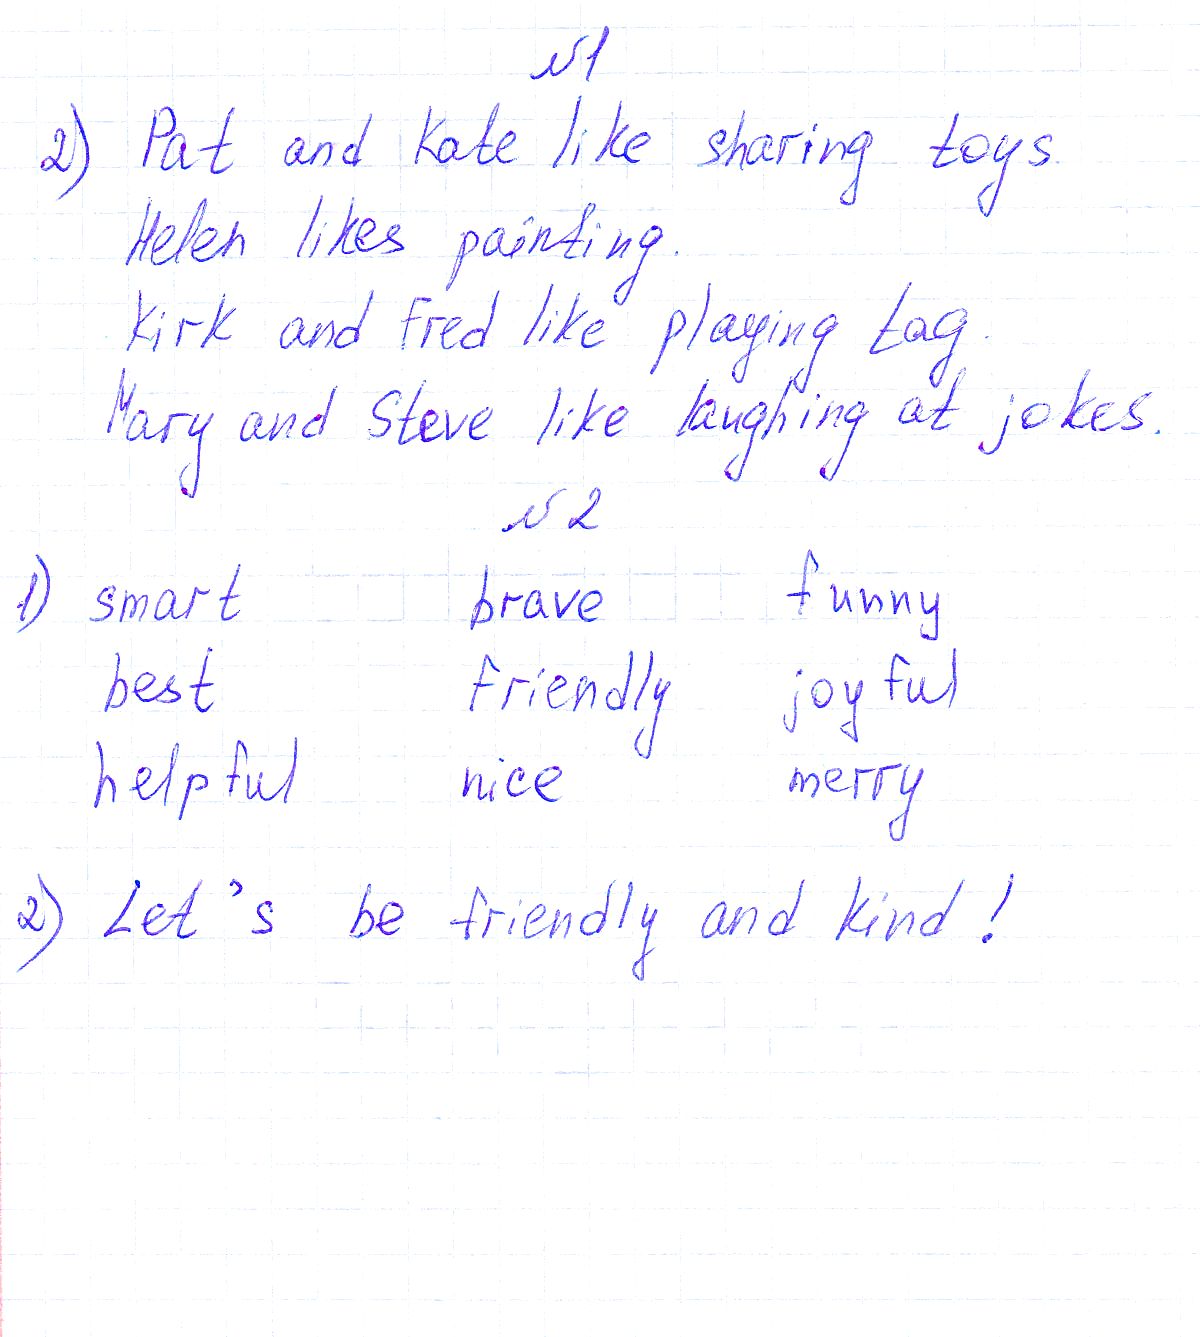 №1
2) Pat and Kate like sharing toys.
Helen likes painting.
Kirk and Fred like playing tag.
Mary and Steve like laughing at jokes.
№2
1) smart brave funny
best friendly joyful
helpful nice merry
2) Let's be friendly and kind!